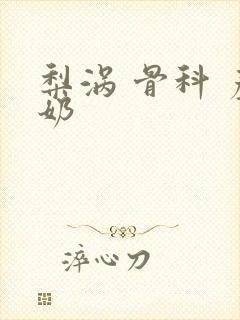 梨涡 骨科
奶
淬心刀